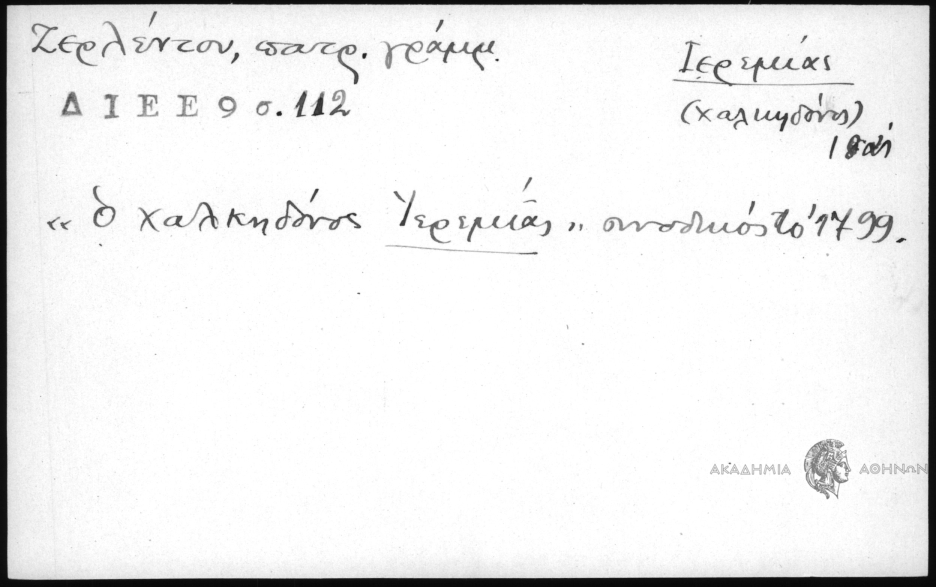 Ζερλέντου, πατρ. γράμμ.
ΔΙΕΕ 9 σ. 112
Ιερεμίας
(Χαλκηδόνος)
« Ὁ Χαλκηδόνος Ἱερεμίας » συνοδικός τό 1799.
ΑΚΑΔΗΜΙΑ ΑΘΗΝΩΝ